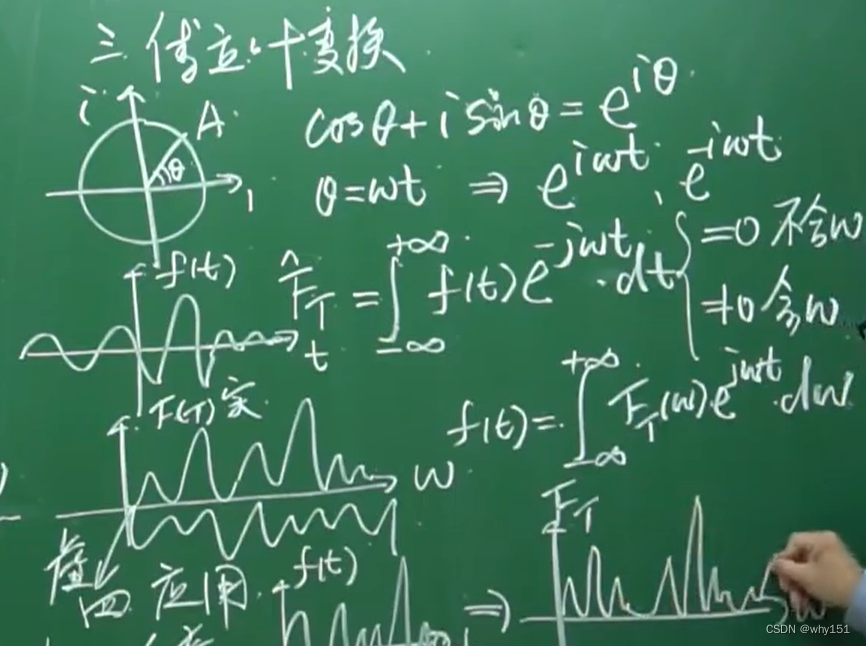 三、傅立叶变换
i A θ 1
cosθ+i sinθ=e^{iθ}
θ=wt ⇒ e^{iwt}, e^{-iwt}
f(t) t
F̂_T = ∫_{-∞}^{+∞} f(t)e^{-jwt}·dt { =0 不含w
≠0 含w
F(T)实 w
f(t)= ∫_{-∞}^{+∞} F_T(w)·e^{jwt}·dw
虚
四 应用
f(t) ⇒ F_T w
CSDN @why151